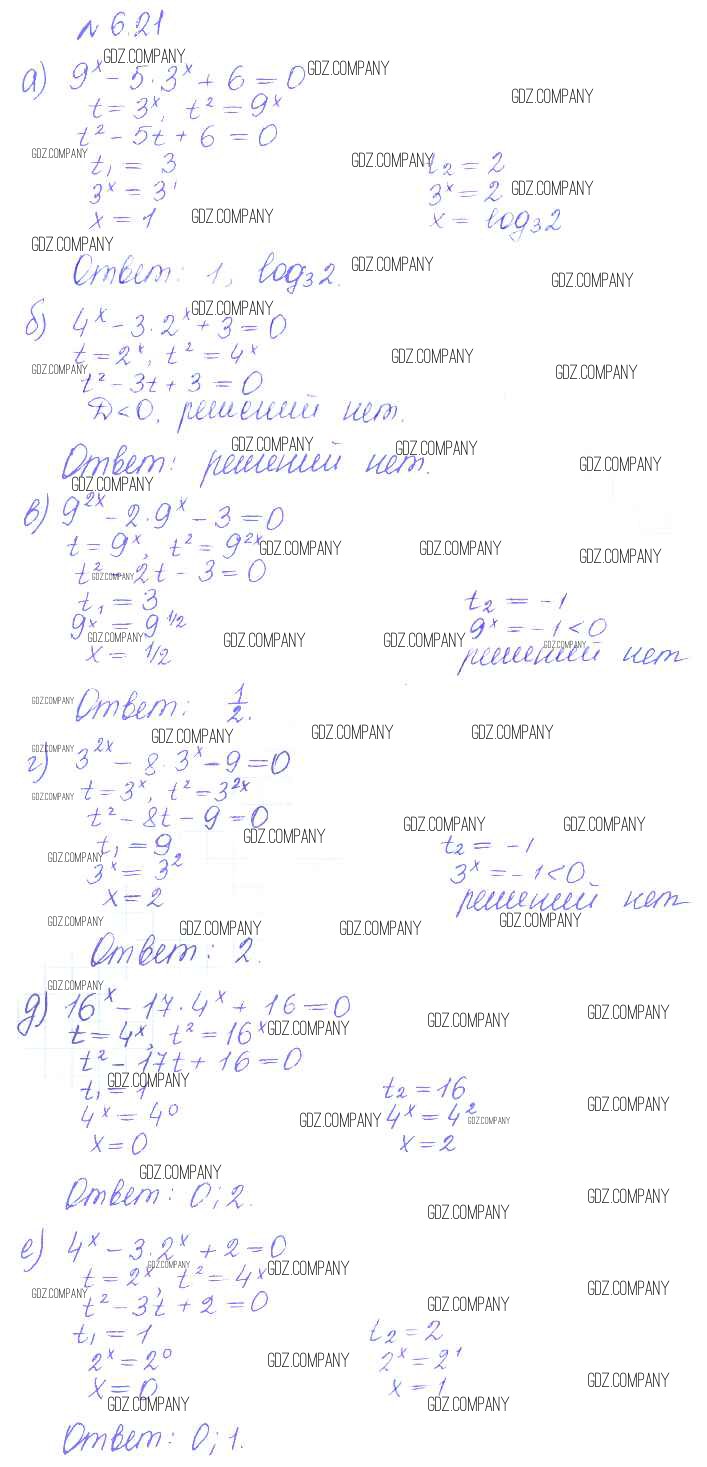 № 6.21
а) 9^x - 5·3^x + 6 = 0
t = 3^x, t² = 9^x
t² - 5t + 6 = 0
t₁ = 3 t₂ = 2
3^x = 3¹ 3^x = 2
x = 1 x = log₃2
Ответ: 1, log₃2.
б) 4^x - 3·2^x + 3 = 0
t = 2^x, t² = 4^x
t² - 3t + 3 = 0
D < 0, решений нет.
Ответ: решений нет.
в) 9^2x - 2·9^x - 3 = 0
t = 9^x, t² = 9^2x
t² - 2t - 3 = 0
t₁ = 3 t₂ = -1
9^x = 9^1/2 9^x = -1 < 0
x = 1/2 решений нет
Ответ: 1/2.
г) 3^2x - 8·3^x - 9 = 0
t = 3^x, t² = 3^2x
t² - 8t - 9 = 0
t₁ = 9 t₂ = -1
3^x = 3² 3^x = -1 < 0
x = 2 решений нет
Ответ: 2.
д) 16^x - 17·4^x + 16 = 0
t = 4^x, t² = 16^x
t² - 17t + 16 = 0
t₁ = 1 t₂ = 16
4^x = 4⁰ 4^x = 4²
x = 0 x = 2
Ответ: 0; 2.
е) 4^x - 3·2^x + 2 = 0
t = 2^x, t² = 4^x
t² - 3t + 2 = 0
t₁ = 1 t₂ = 2
2^x = 2⁰ 2^x = 2¹
x = 0 x = 1
Ответ: 0; 1.
GDZ.COMPANY